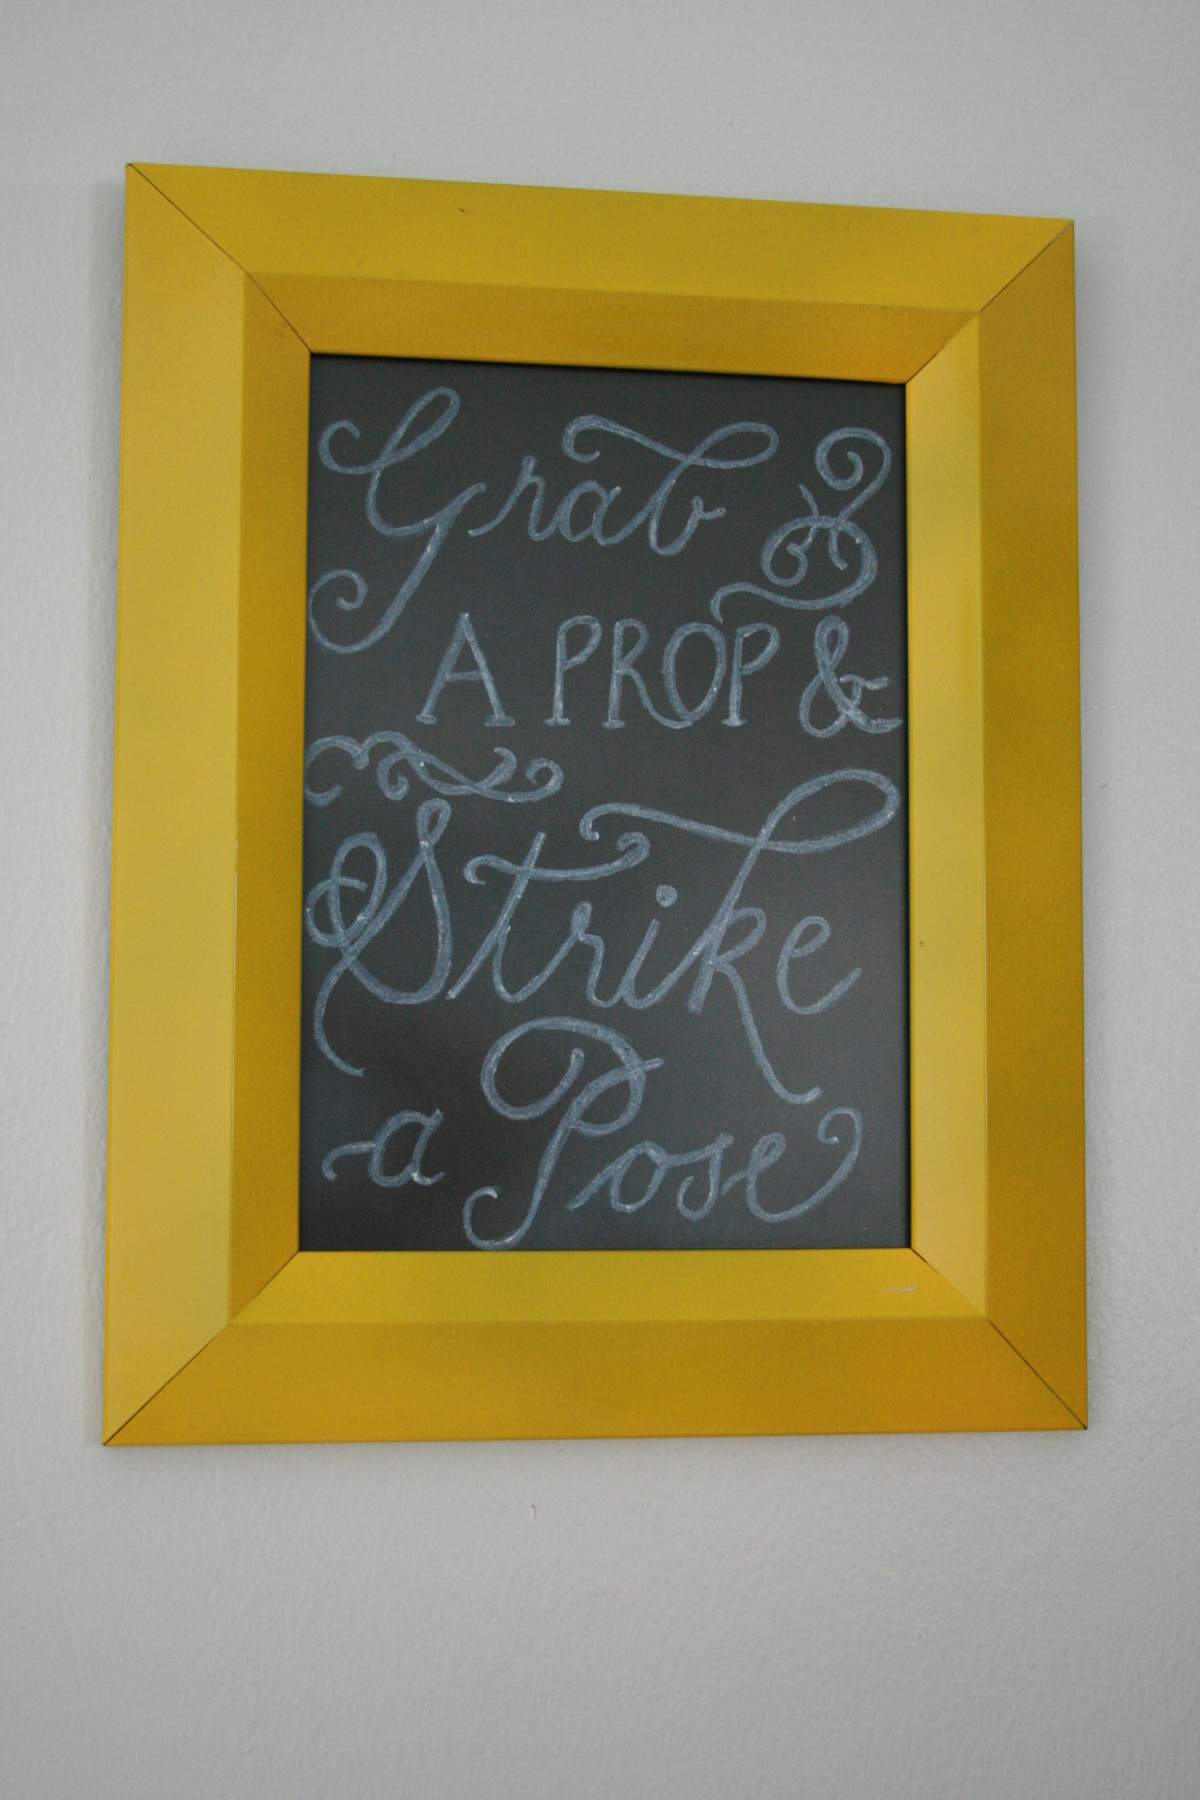 Grab
A PROP &
Strike
a Pose